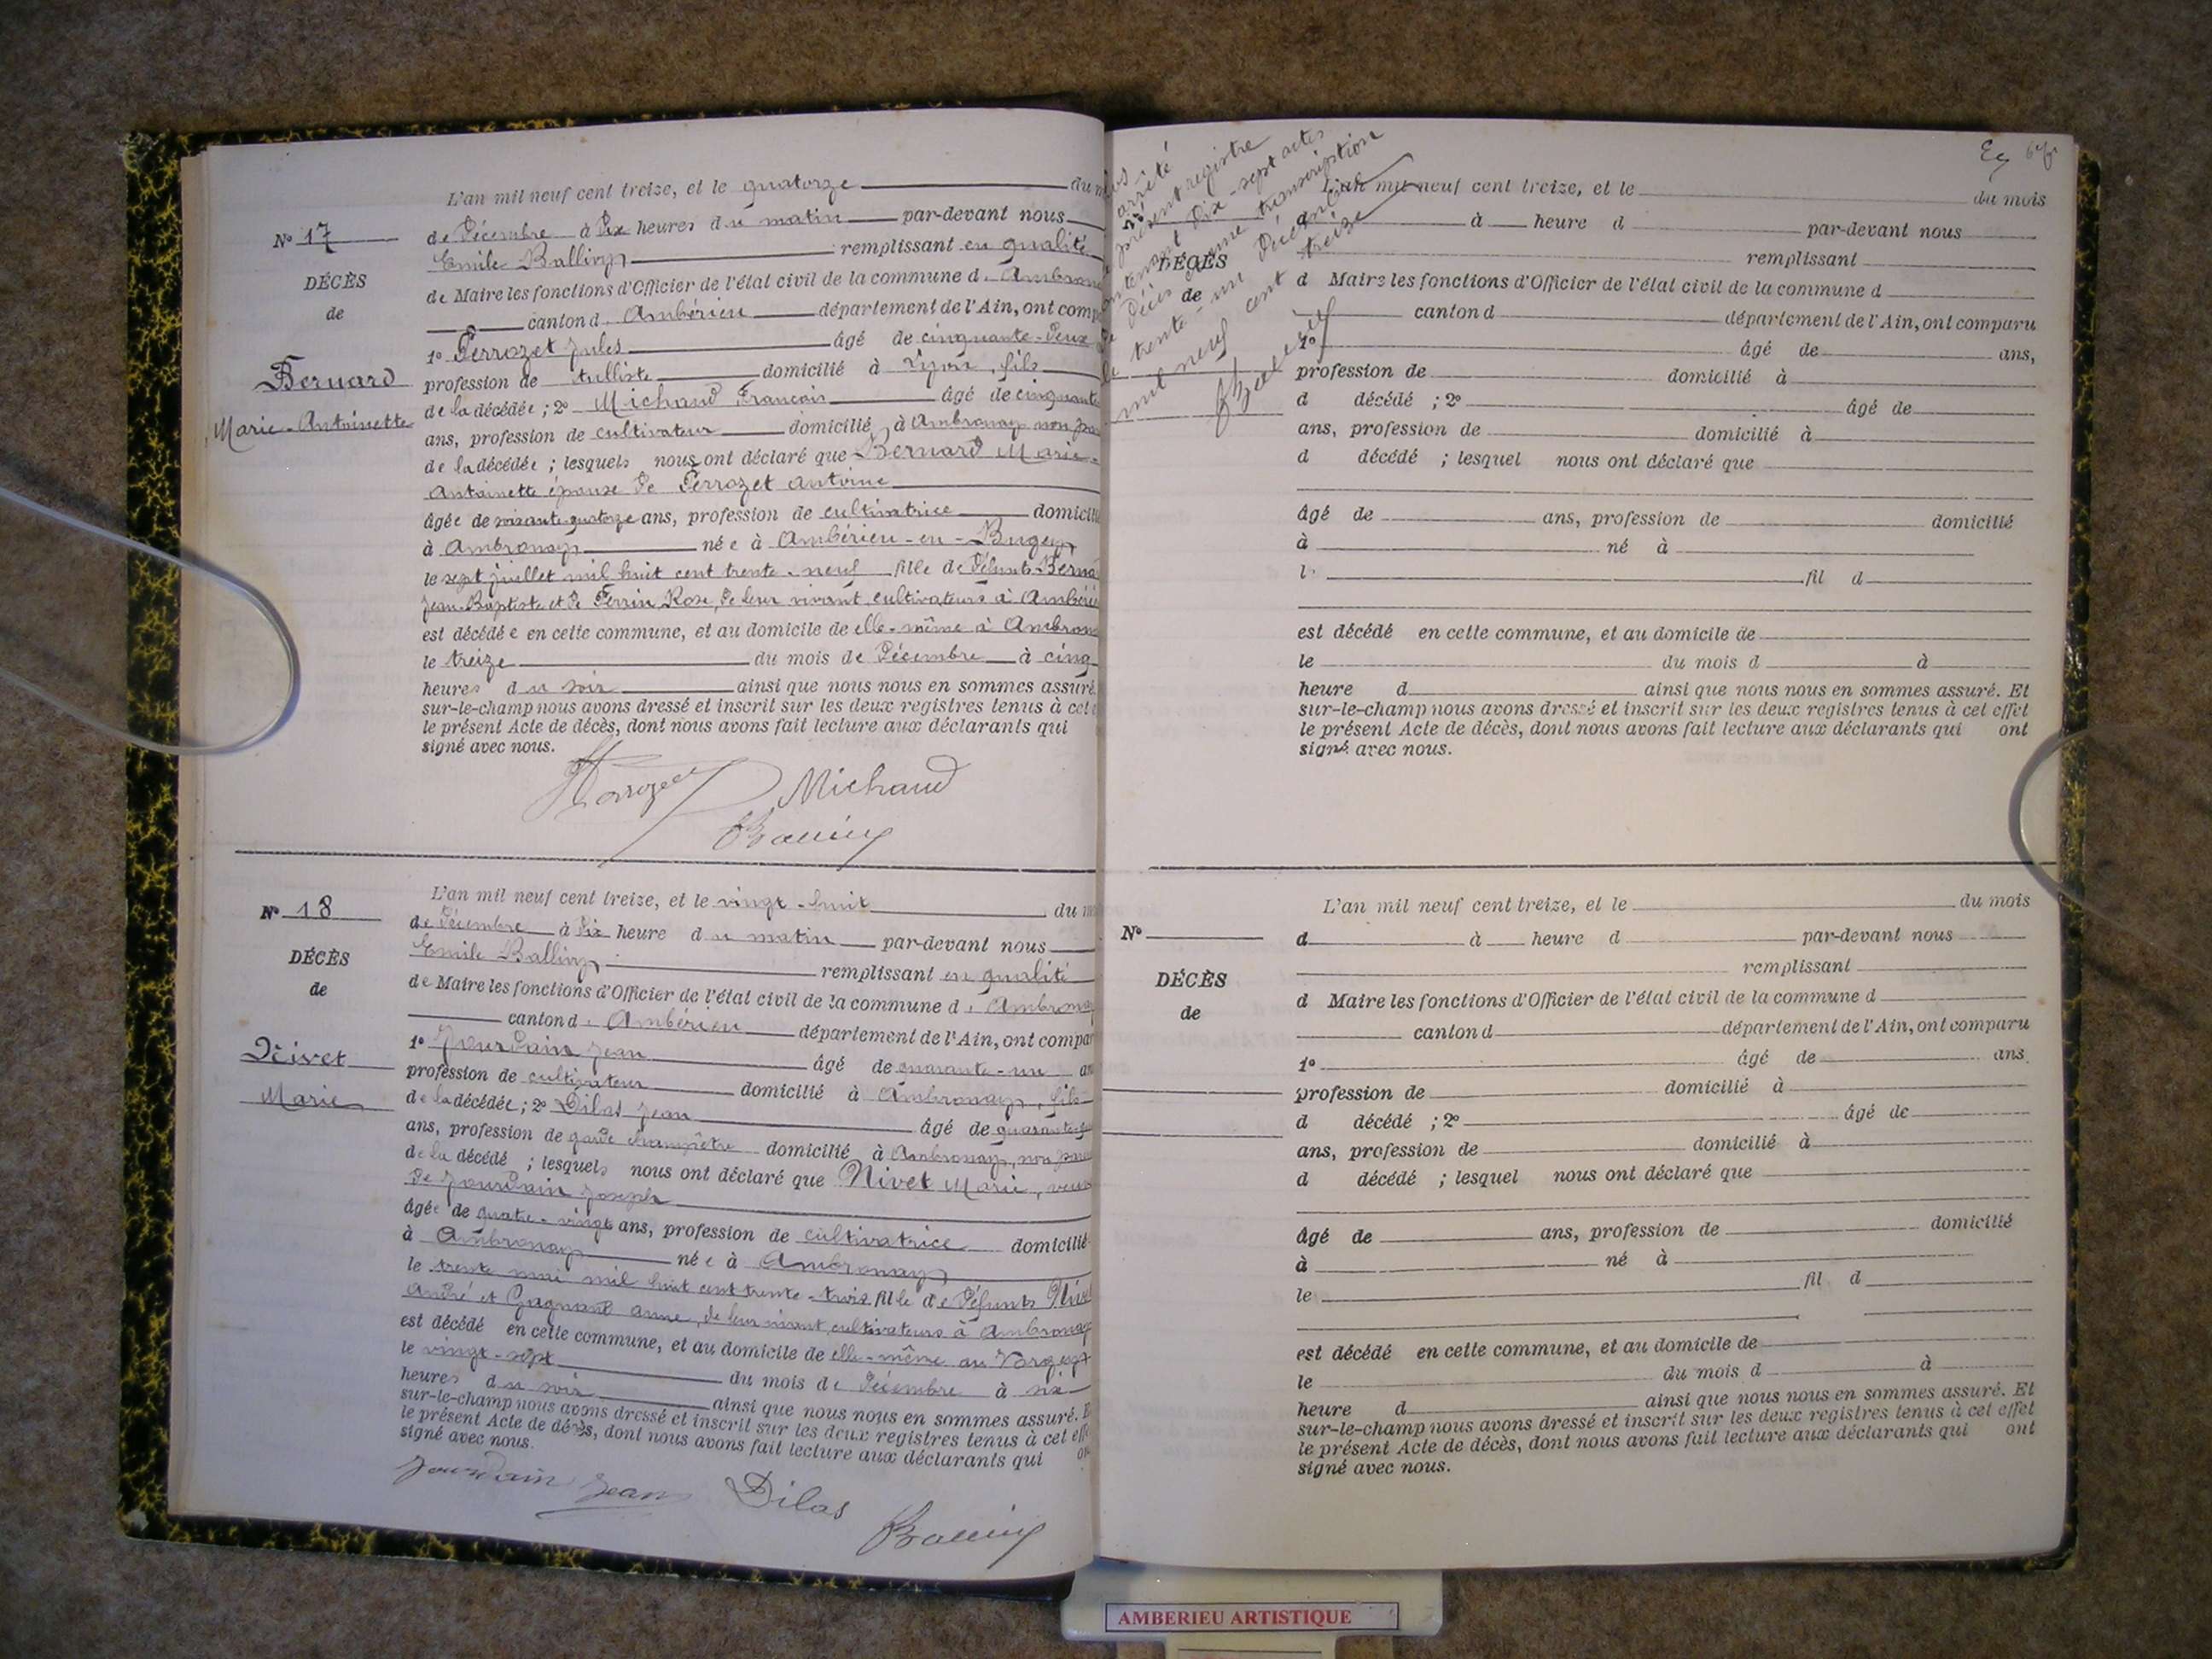 L'an mil neuf cent treize, et le quatorze du m
N° 17
de Décembre à dix heures du matin par-devant nous
Emile Ballivy remplissant en qualité
DÉCÈS
de Maire les fonctions d'Officier de l'état civil de la commune d'Ambrona
de
canton d'Ambérieu département de l'Ain, ont comp
1° Perrozet Jules âgé de cinquante-deux
Bernard
profession de tulliste domicilié à Lyon, fils
de la décédée ; 2° Michaud François âgé de cinquante
Marie-Antoinette
ans, profession de cultivateur domicilié à Ambronay non pa
de la décédée ; lesquels nous ont déclaré que Bernard Marie-
Antoinette épouse de Perrozet Antoine
âgée de soixante-quatorze ans, profession de cultivatrice domicili
à Ambronay née à Ambérieu-en-Bugey
le sept juillet mil huit cent trente-neuf fille de défunts Berna
Jean-Baptiste et de Perrin Rose, de leur vivant cultivateurs à Ambérie
est décédée en cette commune, et au domicile de elle-même à Ambron
le treize du mois de Décembre à cinq
heures du soir ainsi que nous nous en sommes assuré.
sur-le-champ nous avons dressé et inscrit sur les deux registres tenus à cet
le présent Acte de décès, dont nous avons fait lecture aux déclarants qui
signé avec nous.
Perrozet Michaud
Ballivy
L'an mil neuf cent treize, et le vingt-huit du m
N° 18
de Décembre à dix heure du matin par-devant nous
Emile Ballivy remplissant en qualité
DÉCÈS
de Maire les fonctions d'Officier de l'état civil de la commune d'Ambronay
de
canton d'Ambérieu département de l'Ain, ont compar
1° Jourdain Jean âgé de quarante-un an
Nivet
profession de cultivateur domicilié à Ambronay, fils
Marie
de la décédée ; 2° Dilas Jean âgé de quarante
ans, profession de garde champêtre domicilié à Ambronay, non pare
de la décédé ; lesquels nous ont déclaré que Nivet Marie, veuve
de Jourdain Joseph
âgée de quatre-vingt ans, profession de cultivatrice domicilié
à Ambronay née à Ambronay
le trente mai mil huit cent trente-trois fille de défunts Niv
André et Gagnard Anne, de leur vivant cultivateurs à Ambronay
est décédé en cette commune, et au domicile de elle-même au
le vingt-sept du mois de Décembre à six
heures du soir ainsi que nous nous en sommes assuré. E
sur-le-champ nous avons dressé et inscrit sur les deux registres tenus à cet eff
le présent Acte de décès, dont nous avons fait lecture aux déclarants qui on
signé avec nous.
Jourdain Jean Dilas
Ballivy
arrêté
présent registre
contenant dix-sept actes
décès une transcription
trente-un Décembre
mil neuf cent treize
Ballivy
L'an mil neuf cent treize, et le du mois
d à heure d par-devant nous
DÉCÈS
remplissant
d Maire les fonctions d'Officier de l'état civil de la commune d
de
canton d département de l'Ain, ont comparu
1° âgé de ans,
profession de domicilié à
d décédé ; 2° âgé de
ans, profession de domicilié à
d décédé ; lesquel nous ont déclaré que
âgé de ans, profession de domicilié
à né à
l fil d
est décédé en cette commune, et au domicile de
le du mois d à
heure d ainsi que nous nous en sommes assuré. Et
sur-le-champ nous avons dressé et inscrit sur les deux registres tenus à cet effet
le présent Acte de décès, dont nous avons fait lecture aux déclarants qui ont
signé avec nous.
L'an mil neuf cent treize, et le du mois
N°
d à heure d par-devant nous
remplissant
DÉCÈS
d Maire les fonctions d'Officier de l'état civil de la commune d
de
canton d département de l'Ain, ont comparu
1° âgé de ans
profession de domicilié à
d décédé ; 2° âgé de
ans, profession de domicilié à
d décédé ; lesquel nous ont déclaré que
âgé de ans, profession de domicilié
à né à
le fil d
est décédé en cette commune, et au domicile de
le du mois d à
heure d ainsi que nous nous en sommes assuré. Et
sur-le-champ nous avons dressé et inscrit sur les deux registres tenus à cet effet
le présent Acte de décès, dont nous avons fait lecture aux déclarants qui ont
signé avec nous.
AMBERIEU ARTISTIQUE